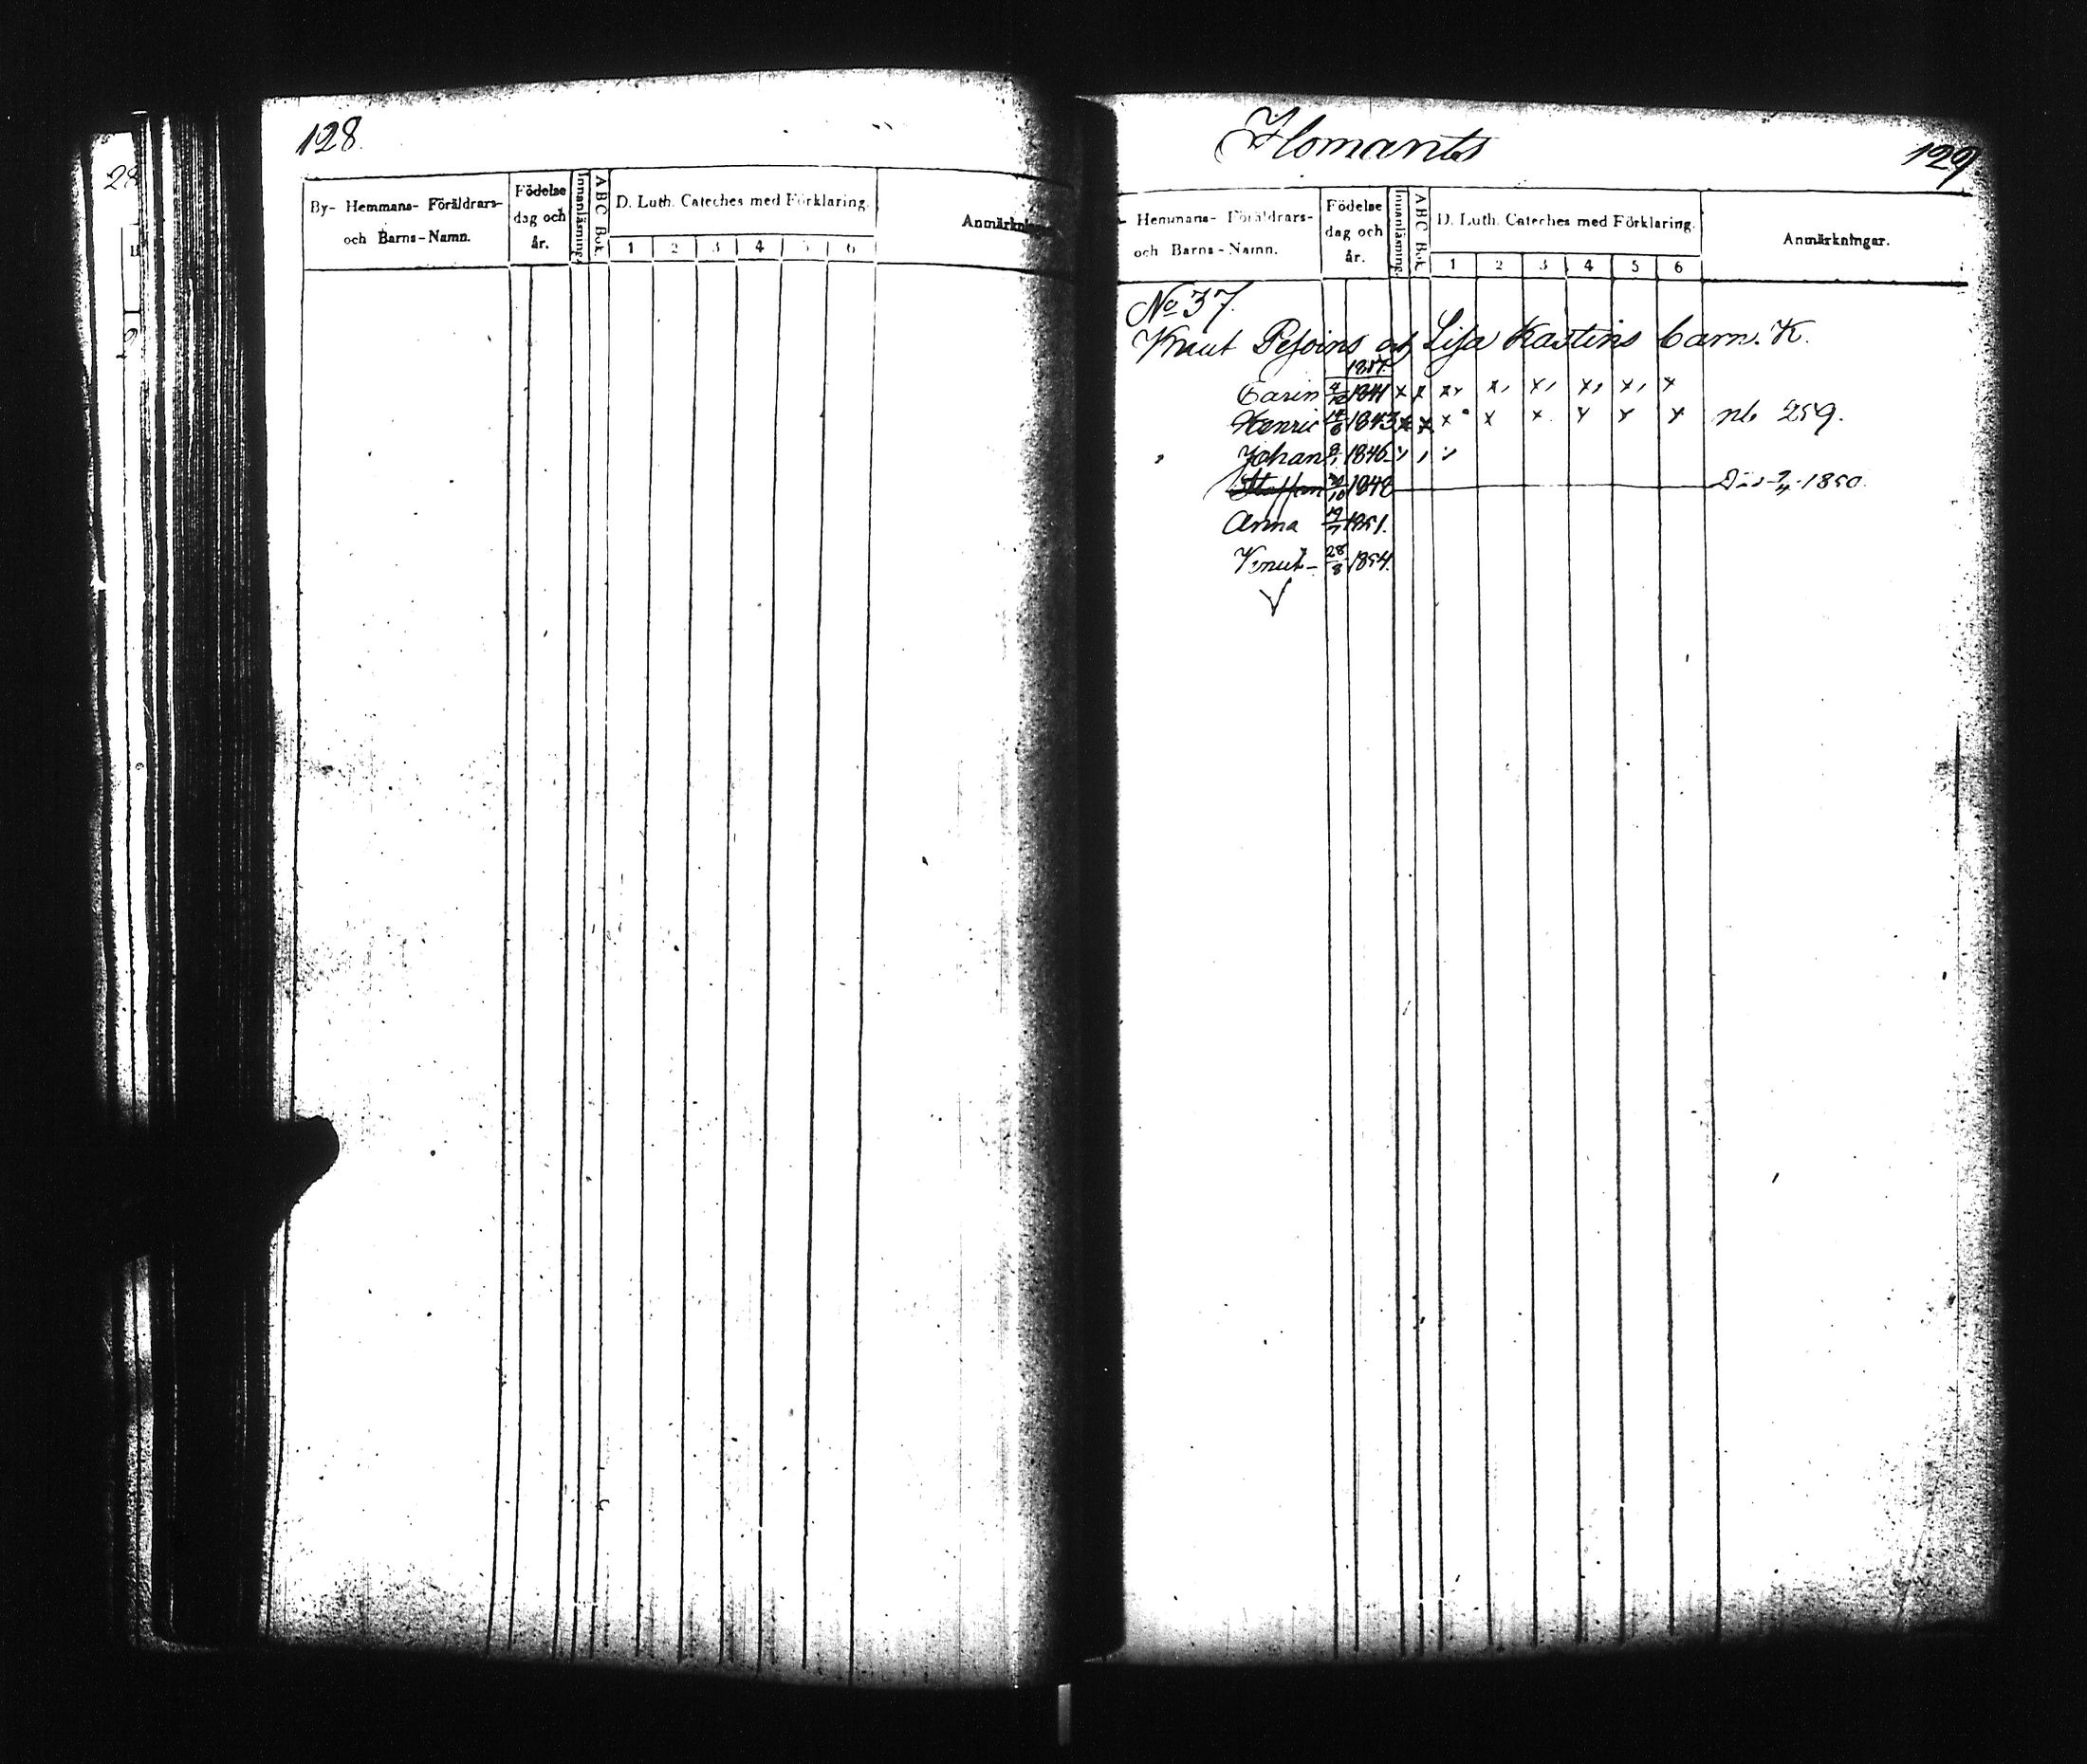 128.
By- Hemmans- Föräldrars-
och Barns-Namn.
Födelse
dag och
år.
Innanläsning.
ABC Bok.
D. Luth. Cateches med Förklaring.
1 2 3 4 5 6
Anmärkningar
Ilomants
129
Hemmans- Föräldrars-
och Barns-Namn.
Födelse
dag och
år.
Innanläsning.
ABC Bok.
D. Luth. Cateches med Förklaring.
1 2 3 4 5 6
Anmärkningar.
No 37.
Knut Pesoins och Lisa Kastins barn. K.
1857.
Carin 1841 x x x, x, x, x, x, x
Henric 1843 x x x x x x x x 259.
Johan 1846
Staffan 1848 1850.
Anna 19/7 1851.
Knut- 28/8 1854.